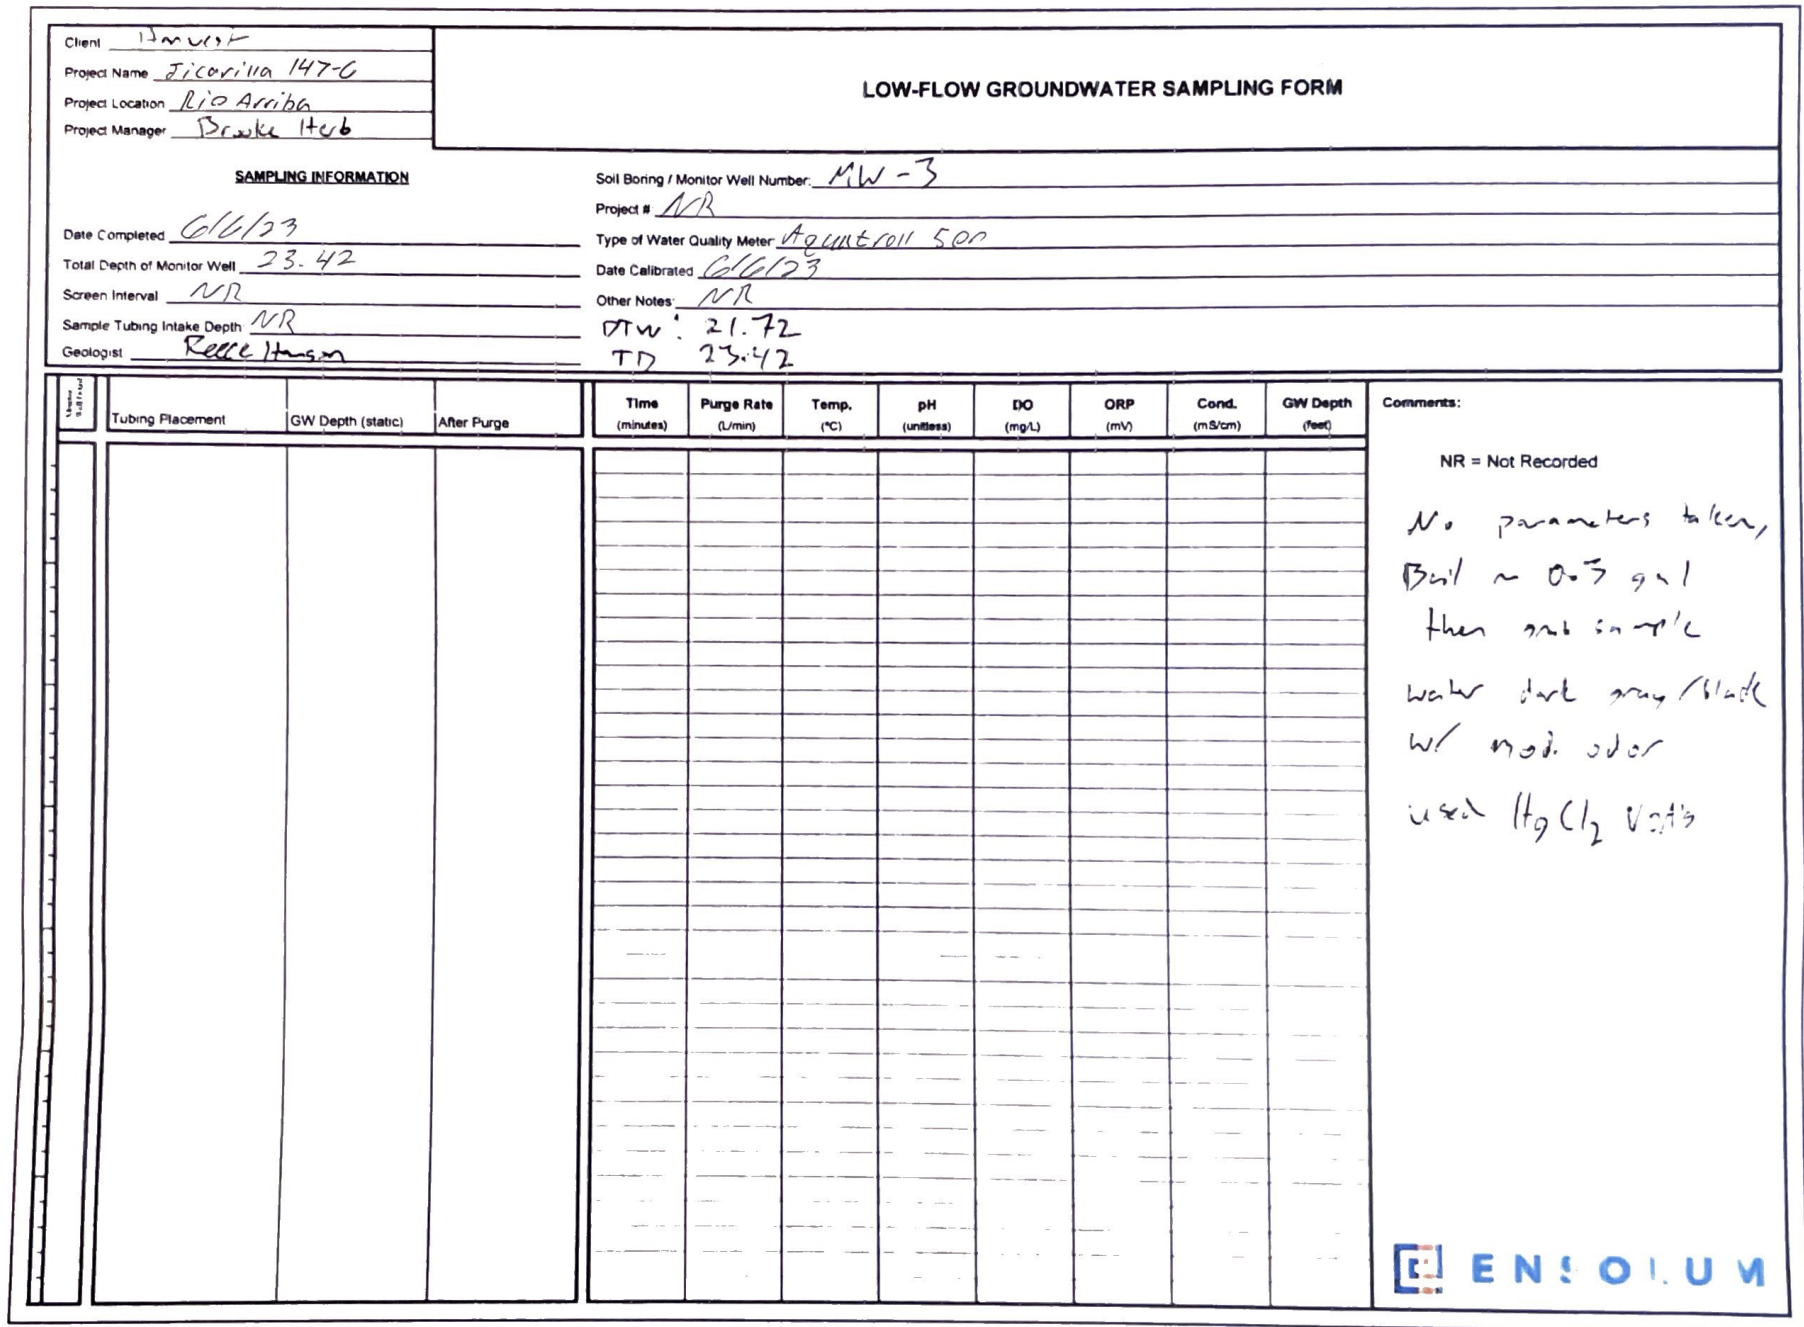 Client Harvest
Project Name Jicarilla 147-6
Project Location Rio Arriba
Project Manager Brooke Herb
LOW-FLOW GROUNDWATER SAMPLING FORM
SAMPLING INFORMATION
Date Completed 6/6/23
Total Depth of Monitor Well 23.42
Screen Interval NR
Sample Tubing Intake Depth: NR
Geologist Reece Hanson
Soil Boring / Monitor Well Number: MW-3
Project # NR
Type of Water Quality Meter: Aquatroll 500
Date Calibrated 6/6/23
Other Notes: NR
DTW: 21.72
TD 23.42
Tubing Placement GW Depth (static) After Purge
Time Purge Rate Temp. pH DO ORP Cond. GW Depth
(minutes) (L/min) (°C) (unitless) (mg/L) (mV) (mS/cm) (feet)
Comments:
NR = Not Recorded
No parameters taken,
Bail ~ 0.3 gal
then grab sample
water dark gray/black
w/ mod. odor
used HgCl2 VOA's
ENSOLUM